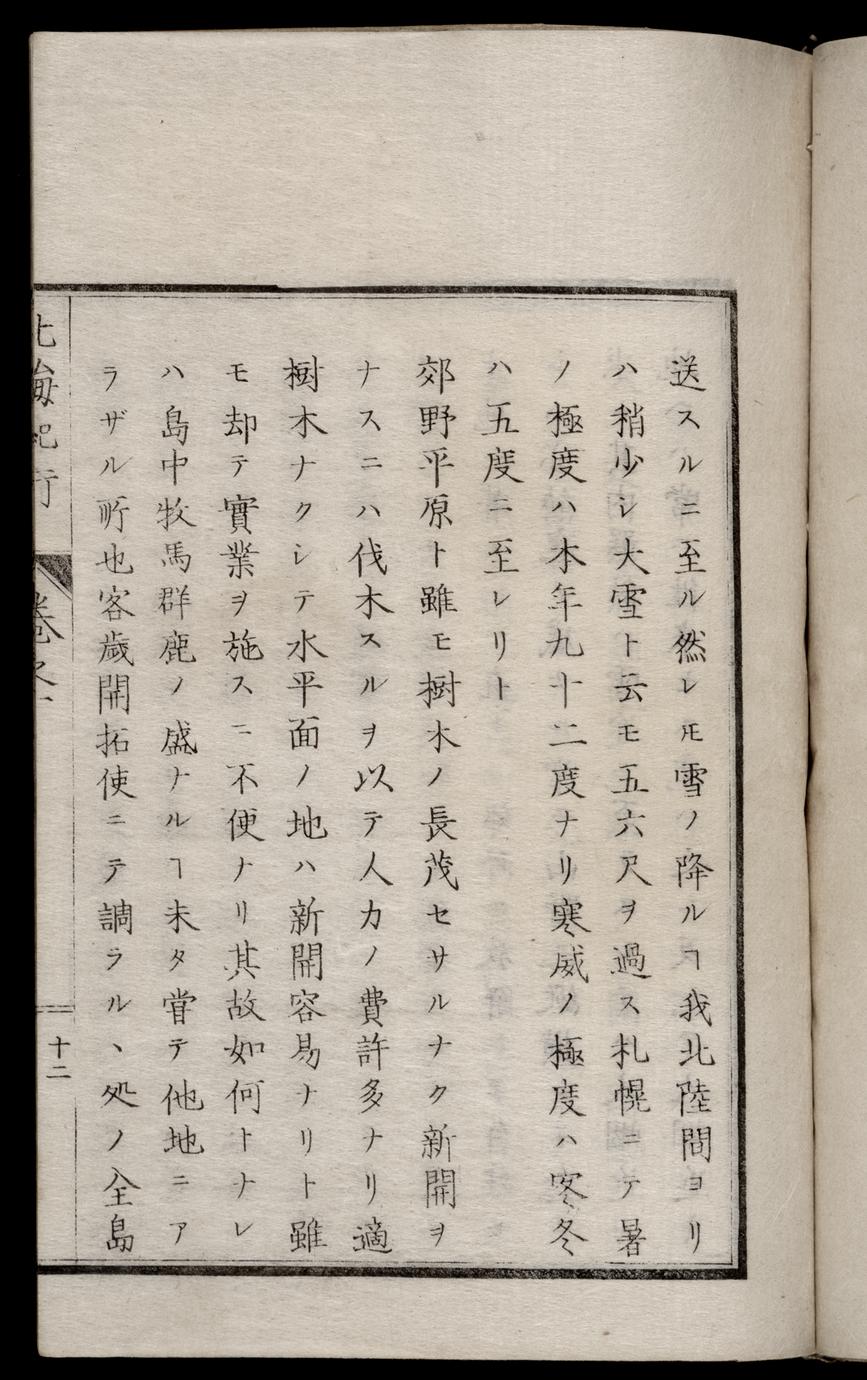 送スルニ至ル然レ𪜈雪ノ降ルヿ我北陸間ヨリ
ハ稍少シ大雪ト云モ五六尺ヲ過ス札幌ニテ暑
ノ極度ハ本年九十二度ナリ寒威ノ極度ハ客冬
ハ五度ニ至レリト
郊野平原ト雖モ樹木ノ長茂セサルナク新開ヲ
ナスニハ伐木スルヲ以テ人力ノ費許多ナリ適
樹木ナクシテ水平面ノ地ハ新開容易ナリト雖
モ却テ實業ヲ施スニ不便ナリ其故如何トナレ
ハ島中牧馬群鹿ノ盛ナルヿ未タ甞テ他地ニア
ラザル所也客歳開拓使ニテ調ラルヽ処ノ全島
北海紀行
卷之一
十二